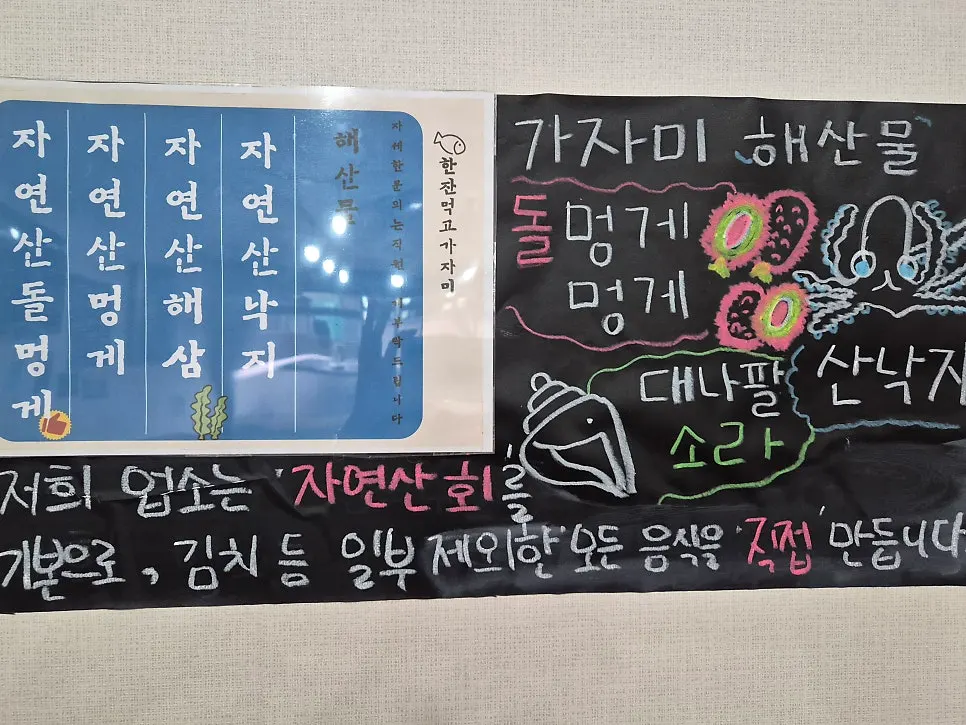 한잔먹고가자미
자세한문의는직원 부탁드립니다
해산물
자연산낙지
자연산해삼
자연산멍게
자연산돌멍게
가자미 '해산물'
돌멍게
멍게
대나팔
소라
산낙지
저희 업소는 '자연산회'를
기본으로, 김치 등 일부 제외한 모든 음식을 '직접' 만듭니다